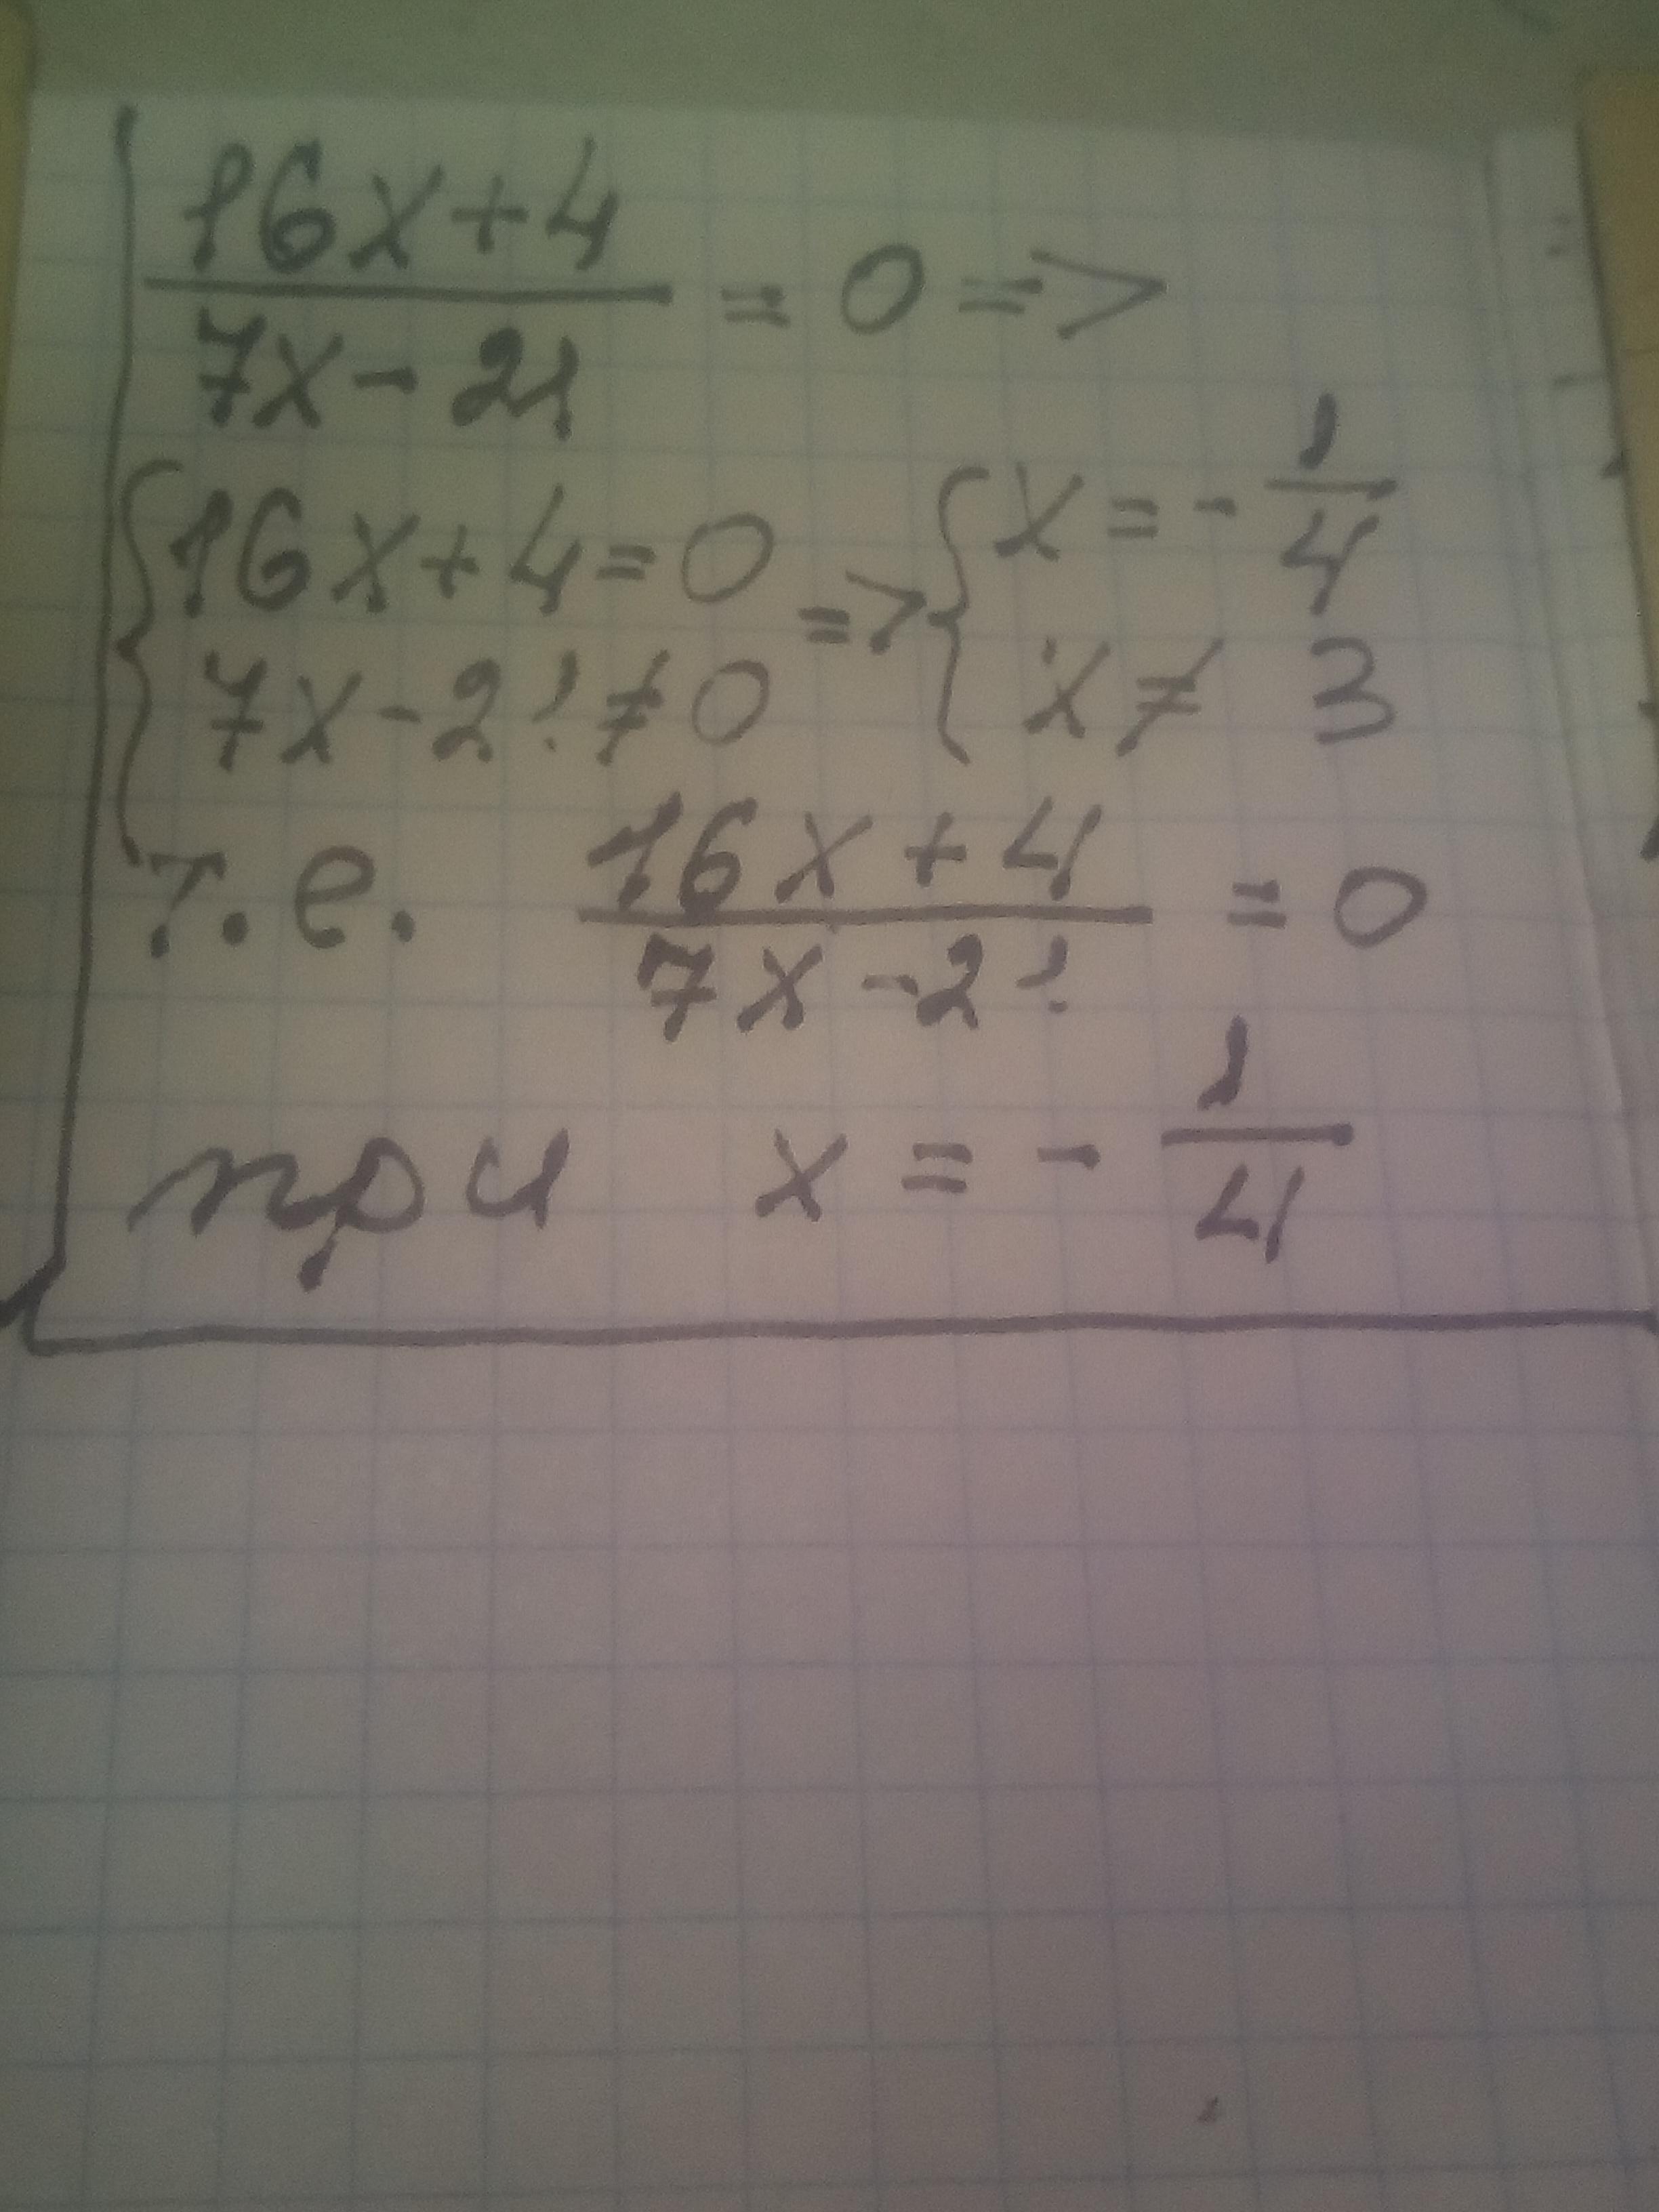 16x+4
/ 7x-21 = 0 =>
{ 16x+4=0
7x-21≠0 => { x = - 1/4
x ≠ 3
т.е. 16x+4 / 7x-21 = 0
при x = - 1/4